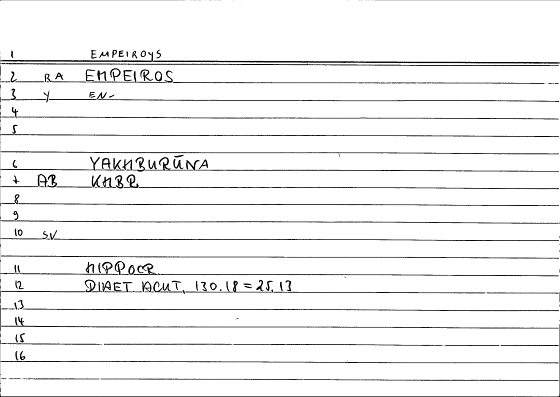 1 EMPEIROYS
2 RA EMPEIROS
3 Y EN-
4
5
6 YAKHBURŪNA
7 AB KHBR
8
9
10 SV
11 HIPPOCR
12 DIAET ACUT, 130.18 = 25,13
13
14
15
16